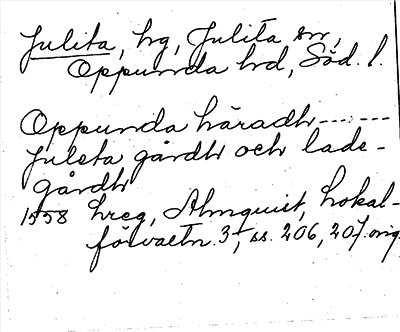 Julita, hg, Julita sn,
Oppunda hd, Söd. l.
Oppunda häradh-------
Juleta gårdh och lade-
gårdh
1558 hreg, Almquist, Lokal-
förvaltn. 3, ss. 206, 207. orig.